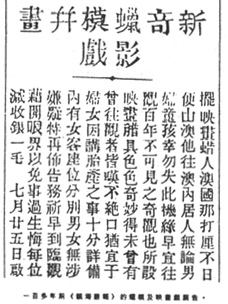 新奇蠟模幷畫
影戲
擺映畫蠟人澳國那打厘不日
使山澳他往澳內居人無論男
婦童孩幸勿失此機緣早宜往
觀百年不可見之奇觀也所設
映畫蠟具色色奇妙得未曾有
曾往觀者皆嘆不絕口猶宜于
婦女因講胎產之事十分詳備
內有女客座位分別男女無涉
嫌疑特再佈告務祈早到臨觀
藉開眼界以免事過生悔每位
減收銀一毛 七月廿五日啟
一百多年前《鏡海叢報》的蠟模及映畫戲廣告。